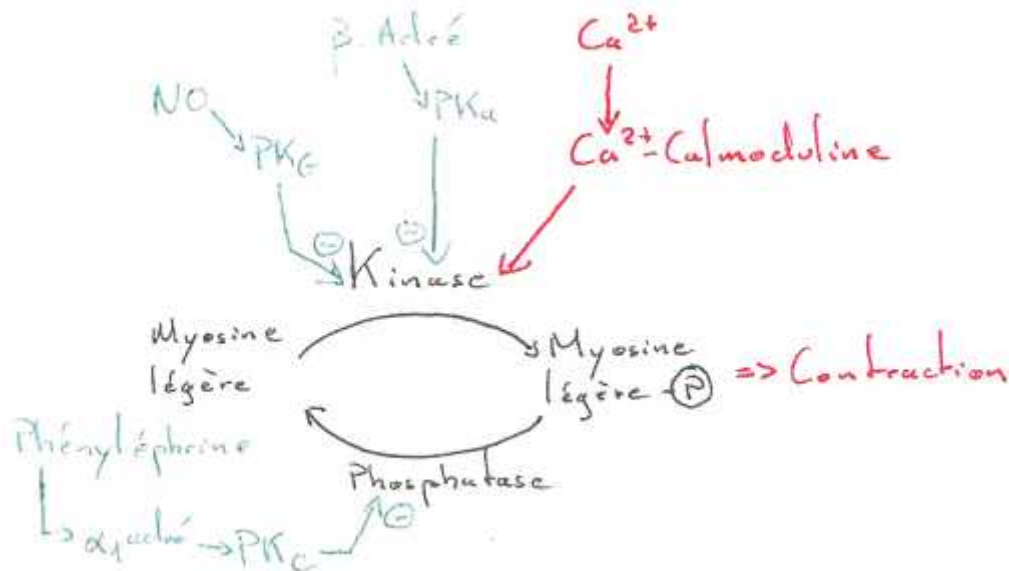 β. Adré
Ca²⁺
NO
PKa
PKG
Ca²⁺-Calmoduline
⊖
⊖
Kinase
Myosine
légère
Myosine
légère-Ⓟ => Contraction
Phényléphrine
Phosphatase
⊖
α₁ adré → PKc